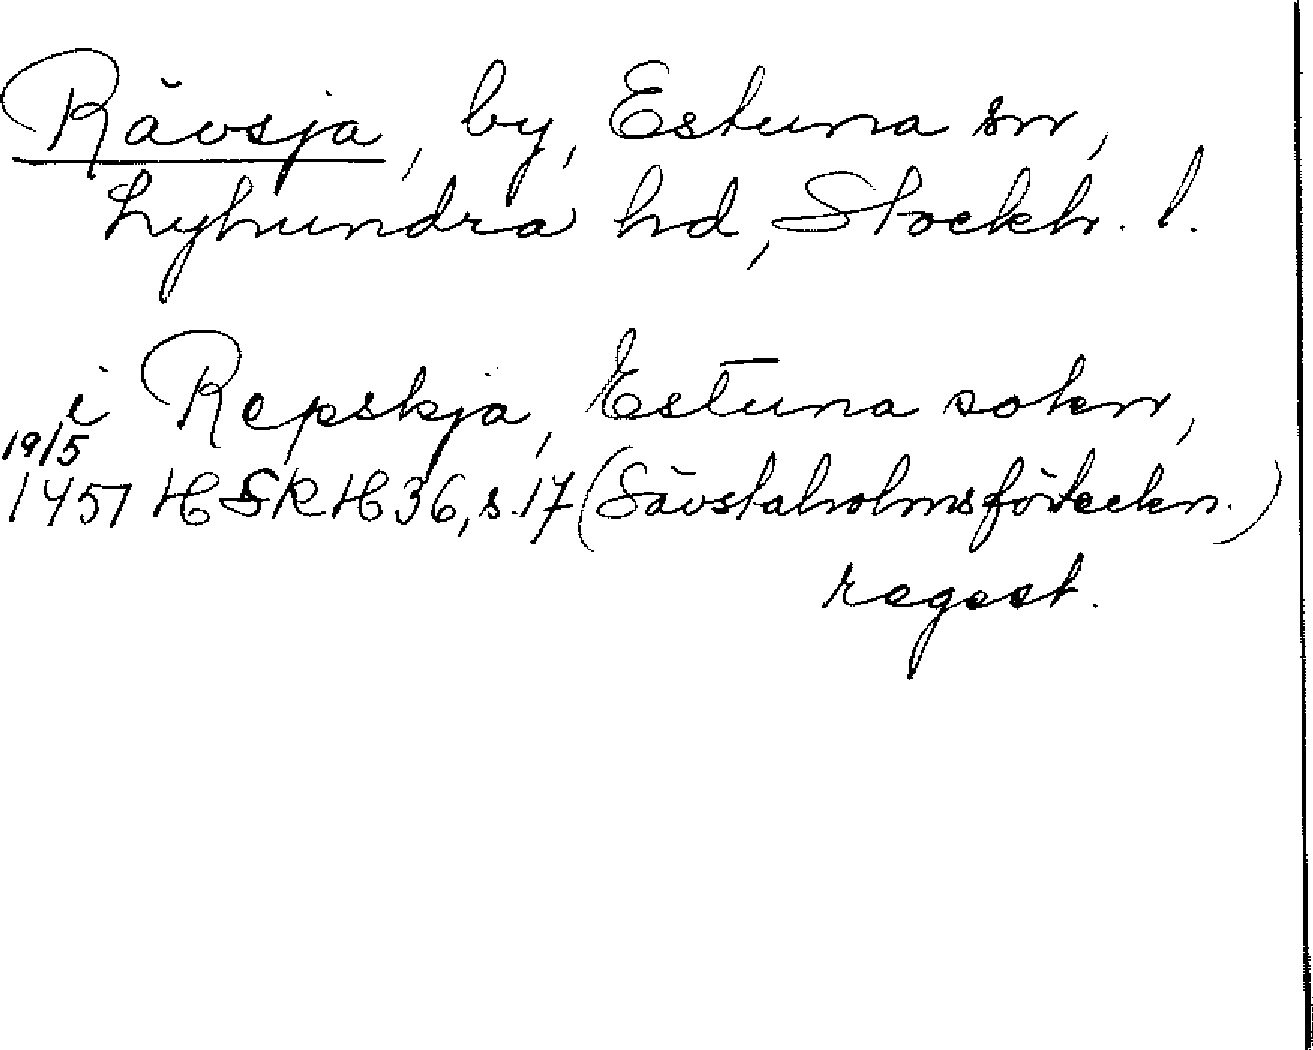 Rävsja, by, Estuna sn,
Lyhundra hd, Stockh. l.
i Repskja, Estuna sokn,
19/5
1457 HSRH 36, s. 17 (Sävstaholmsförteckn.)
regest.